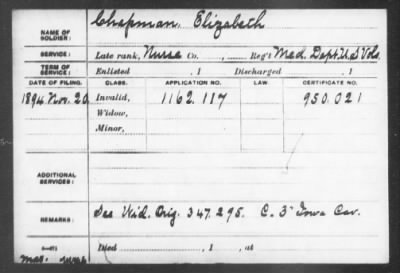 NAME OF SOLDIER: Chapman, Elizabeth
SERVICE: Late rank, Nurse Co. , Reg't Med. Dept. U.S Vols.
TERM OF SERVICE: Enlisted , 1 Discharged , 1
DATE OF FILING. CLASS. APPLICATION NO. LAW. CERTIFICATE NO.
1894 Nov. 20 Invalid, 1162.117 950.021
Widow,
Minor,
ADDITIONAL SERVICES:
REMARKS: See Wid. Orig. 347.295. C. 3" Iowa Cav.
Died , 1 , at